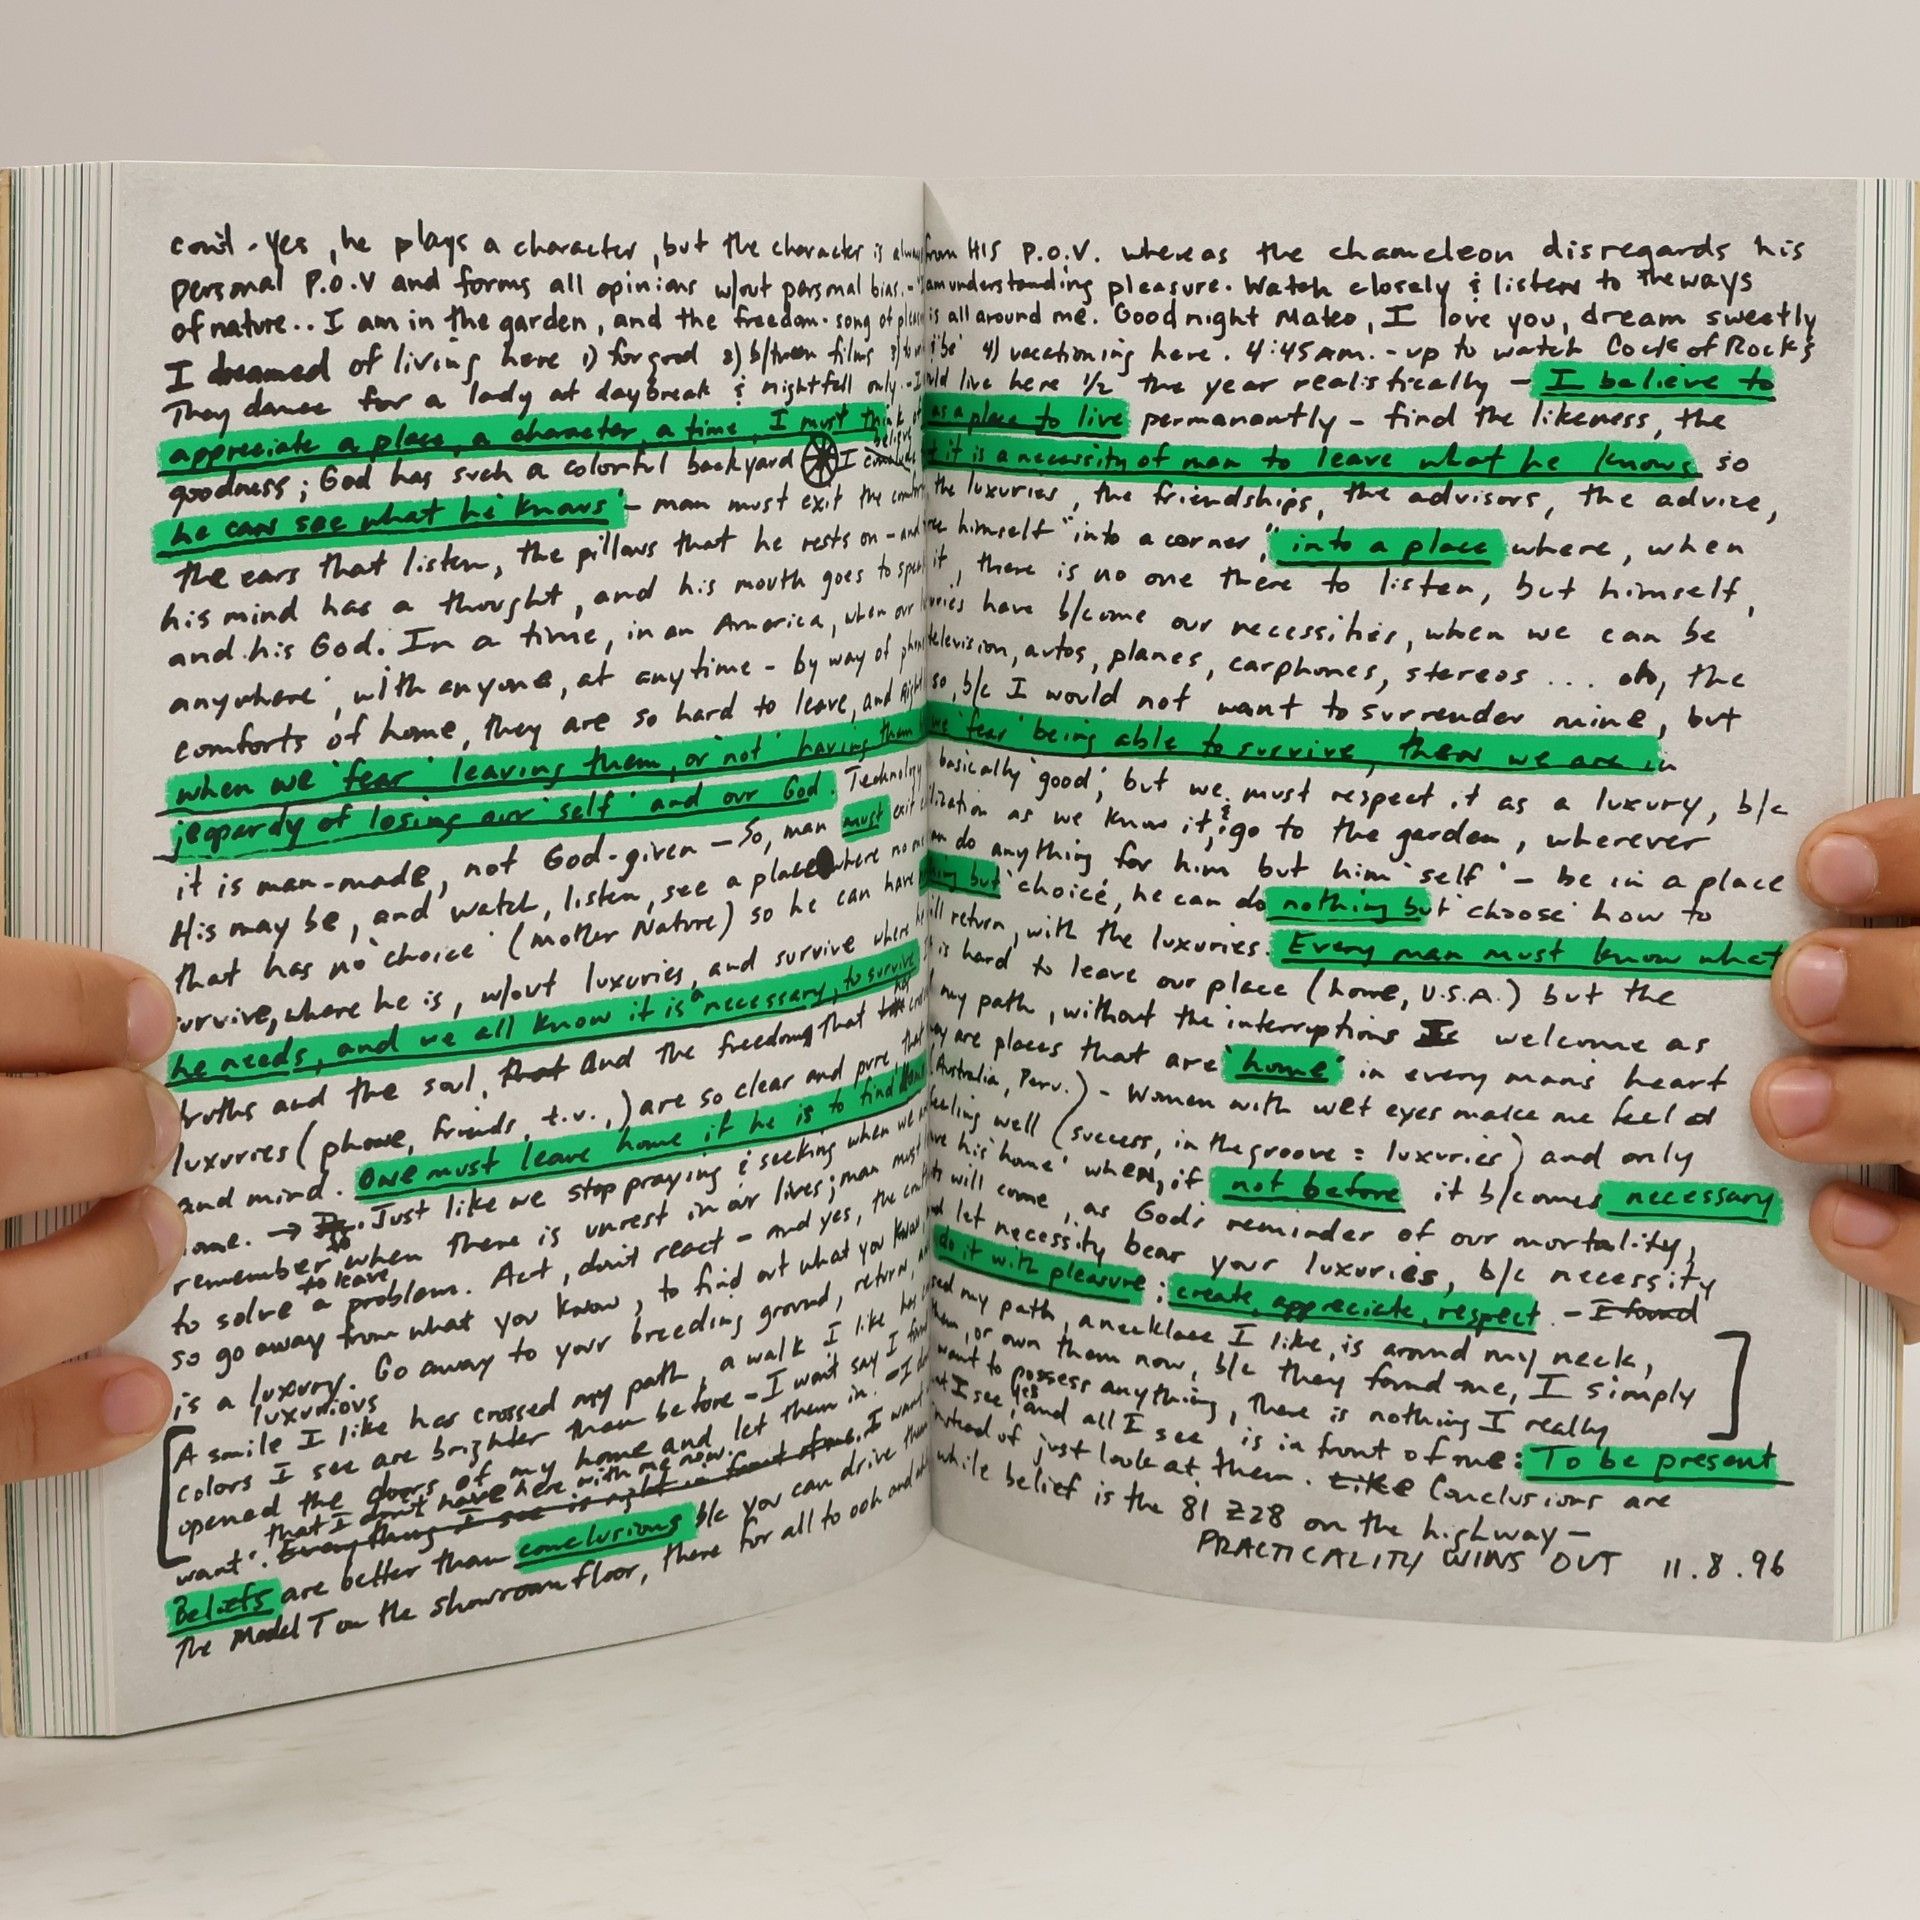 con'd - Yes, he plays a character, but the character is always from HIS P.O.V. whereas the chameleon disregards his
personal P.O.V and forms all opinions w/out personal bias. - am understanding pleasure. Watch closely & listen to the ways
of nature.. I am in the garden, and the freedom-song of is all around me. Good night Mateo, I love you, dream sweetly
I dreamed of living here 1) for good 2) b/tween films 3) 'be' 4) vacationing here. 4:45 am. - up to watch Cock of Rocks
They dance for a lady at daybreak & nightfall only. - I live here 1/2 the year realistically - I believe to
appreciate a place, a character, a time, I must think of as a place to live permanantly - find the likeness, the
goodness; God has such a colorful backyard I believe it is a necessity of man to leave what he knows so
he can see what he 'knows' - man must exit the the luxuries, the friendships, the advisors, the advice,
the ears that listen, the pillows that he rests on - and himself "into a corner," into a place where, when
his mind has a thought, and his mouth goes to speak it, there is no one there to listen, but himself,
and his God. In a time, in an America, when our have b/come our necessities, when we can be
anywhere', with anyone, at anytime - by way of television, autos, planes, carphones, stereos ... oh, the
comforts of home, they are so hard to leave, and so, b/c I would not want to surrender mine, but
when we 'fear' leaving them, or 'not' having them we 'fear' being able to survive, then we are in
jeopardy of losing our 'self' and our God. Technology basically 'good', but we must respect it as a luxury, b/c
it is man-made, not God-given - So, man must exit as we know it, & go to the garden, wherever
His may be, and watch, listen, see a place where no do anything for him but him 'self' - be in a place
that has no 'choice' (Mother Nature) so he can have but 'choice', he can do nothing but 'choose' how to
survive, where he is, w/out luxuries, and survive where return, with the luxuries. Every man must know what
he needs, and we all know it is "necessary, to survive is hard to leave our place (home, U.S.A.) but the
truths and the soul, that And the freedom that my path, without the interruptions Is welcome as
luxuries (phone, friends, t.v.,) are so clear and pure, that are places that are 'home' in every man's heart
and mind. One must leave home if he is to find (Australia, Peru.) - Women with wet eyes make me feel at
home. → Just like we stop praying & seeking when we well (success, in the groove = luxuries) and only
remember when there is unrest in our lives; man must his 'home' when, if not before it b/comes necessary
to solve a problem. Act, don't react - and yes, the will come, as God's reminder of our mortality,
so to leave
so go away from what you know, to find out what you know, let necessity bear your luxuries, b/c necessity
is a luxury. Go away to your breeding ground, return, do it with pleasure; create, appreciate, respect. - I found
luxurious
A smile I like has crossed my path, a walk I like has my path, a necklace I like, is around my neck,
colors I see are brighter than before - I won't say I or own them now, b/c they found me, I simply
opened the doors of my home and let them in. - I want to possess anything, there is nothing I really
that I don't have here with me now.
want'. Everything I see is right in front of me. I want I see, yes and all I see is in front of me: To be present
Beliefs are better than conclusions b/c you can drive them instead of just look at them. Like Conclusions are
The Model T on the showroom floor, there for all to ooh and while belief is the 81 Z28 on the highway -
PRACTICALITY WINS OUT 11.8.96